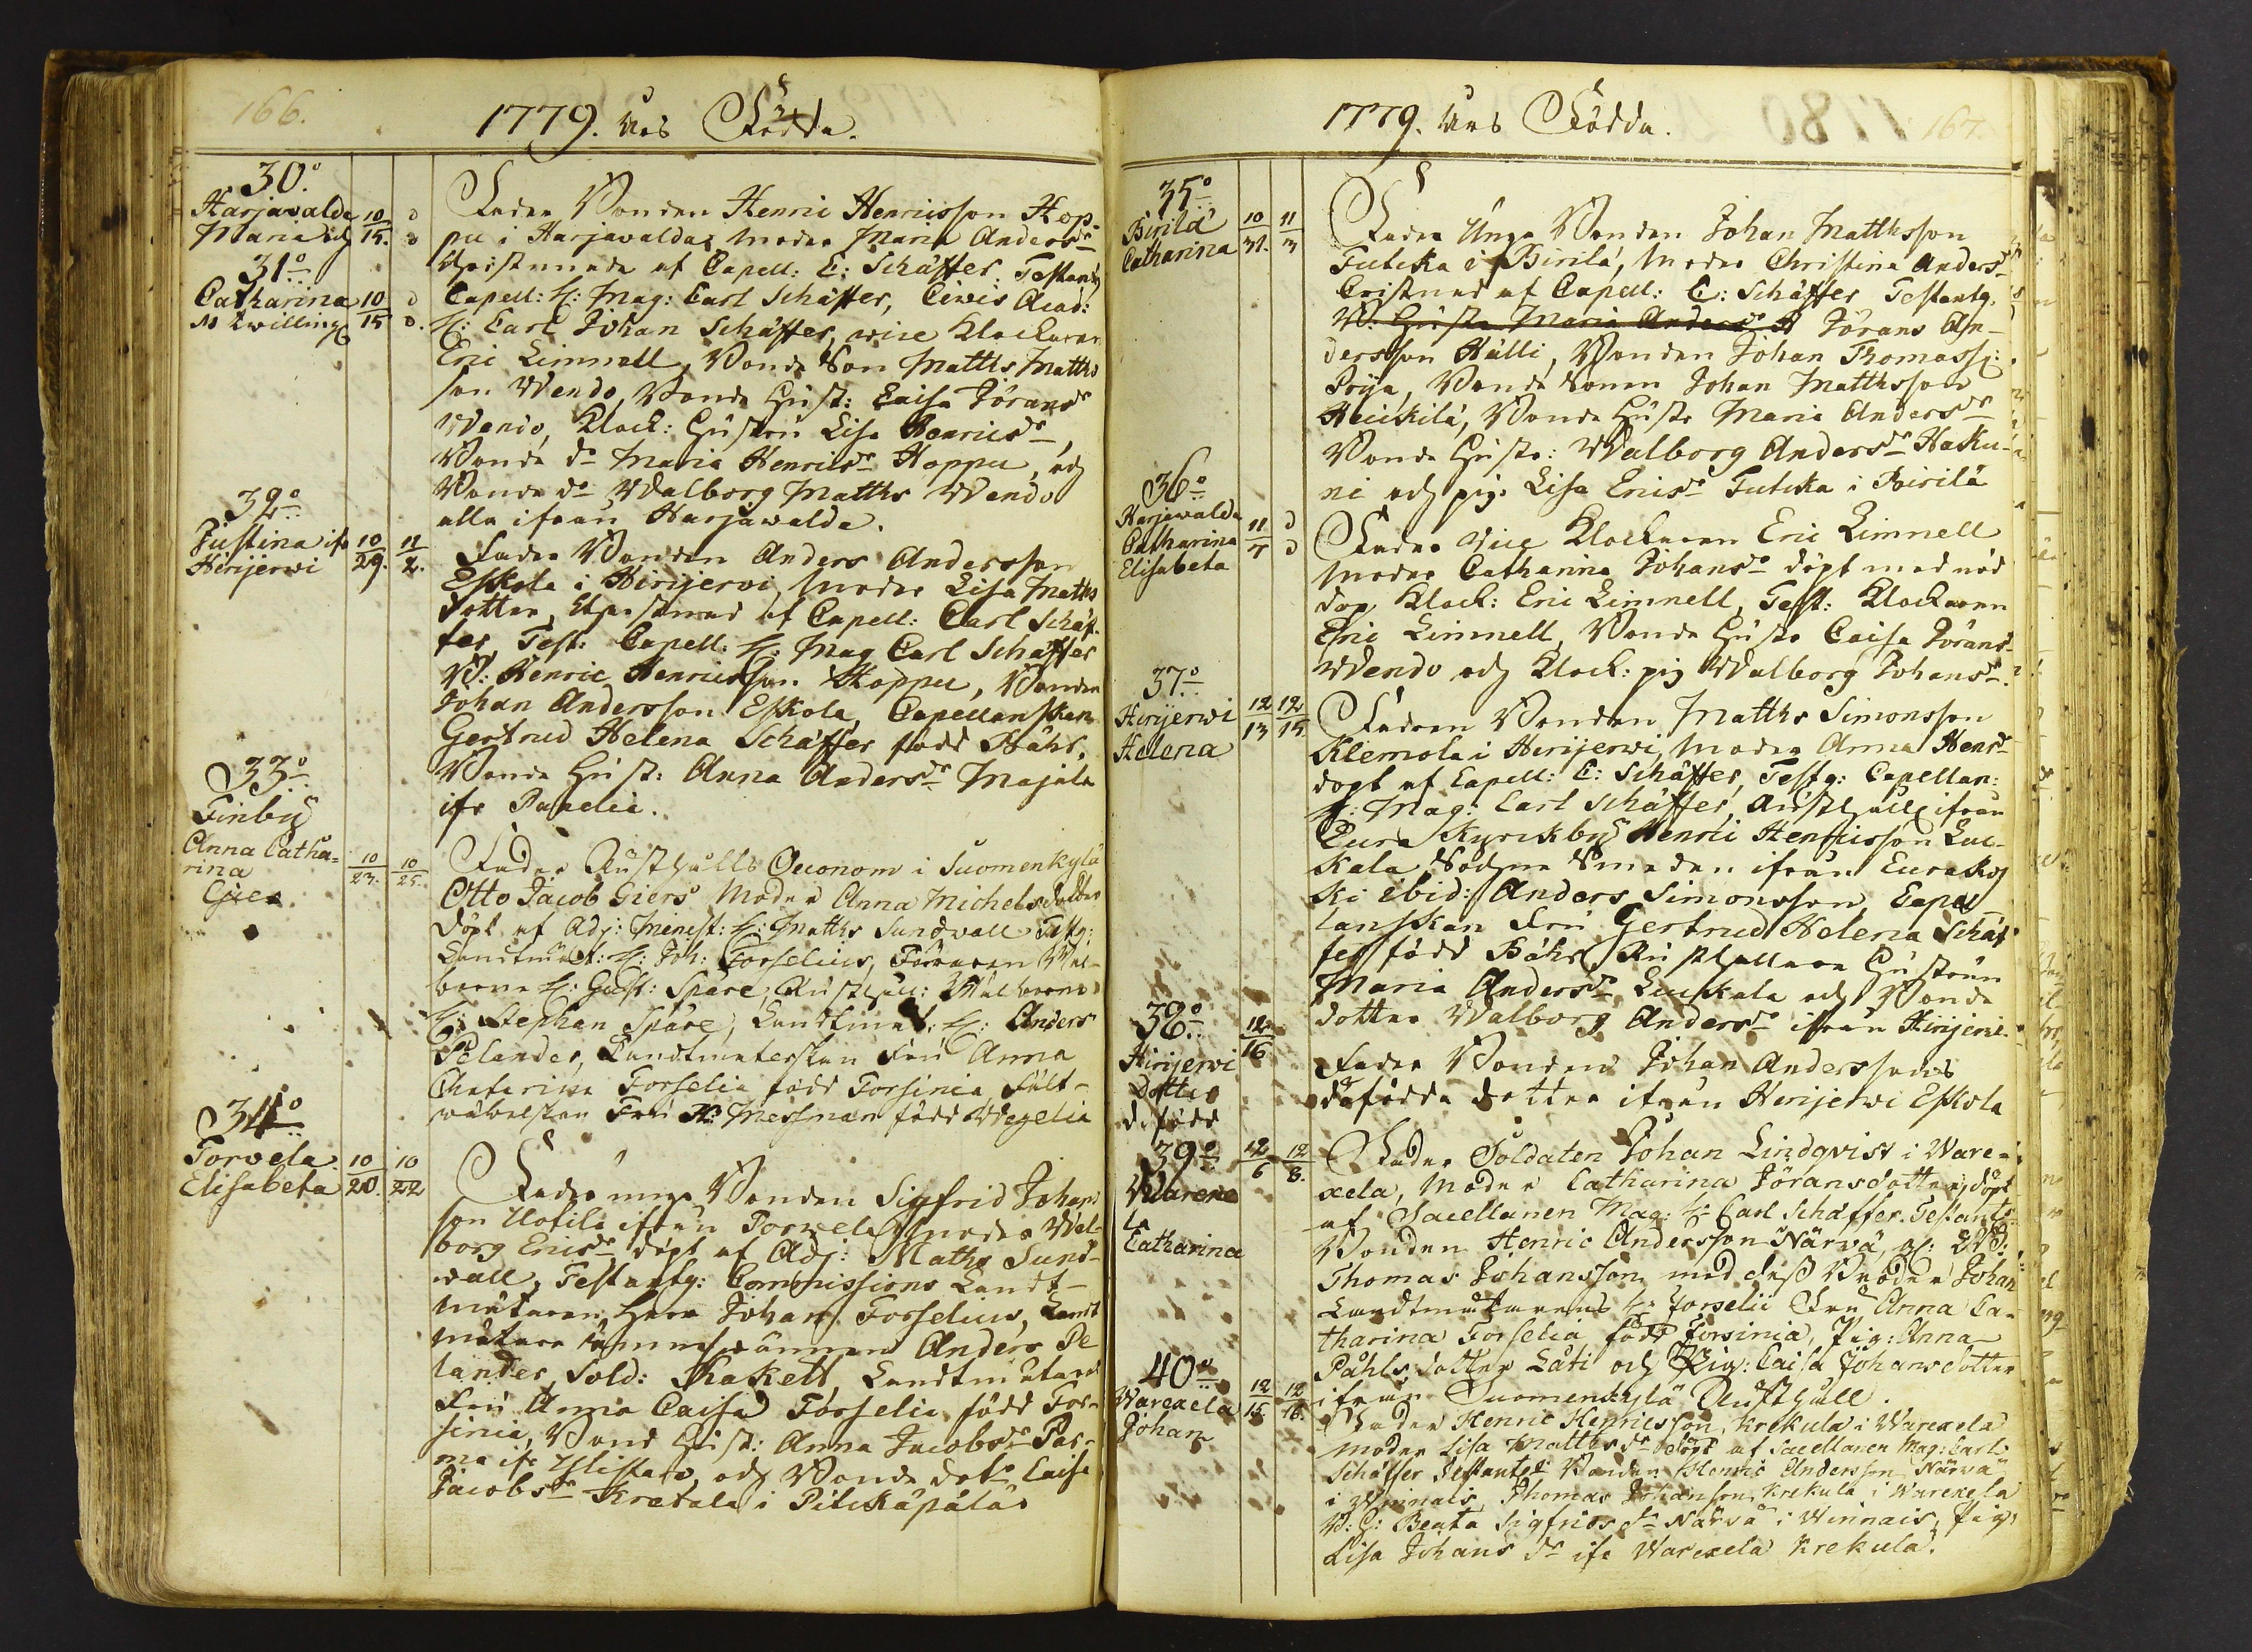 166.
1779. års Födda.
30.o
Harjavalda 10/15. d
Maria och d
31o
Catharina 10/15 d
st twillingz d.
Fader Bonden Henric Henricsson Hop-
pu i Harjavalda; moder Maria Andersdr
Christnade af Capell: C: Schäffer. Testantz
Capell: H: Mag: Carl Schäffer, Civis Acad:
H: Carl Johan Schäffer, vice Klockaren
Eric Limnell, Bonde Son Matths Matths
son Wendo, Bonde Hust: Caisa Jöransdr
Wendo, Klock: Hustru Lisa Henricsdr,
Bonde dr Maria Henricsdr Hoppu, och
Bonde dr Walborg Matths Wendo
alla ifrån Harjawalda.
32o
Justina ifr 10/29. 11/2.
Hirijerwi
Fader Bonden Anders Andersson
Eskola i Hirijerwi, moder Lisa Matths
dotter, Christnad af Capell: Carl Schäf-
fer, Test: Capell: H: Mag Carl Schäffer
B: Henric Henricsson Hoppu, Bonden
Johan Andersson Eskola, Capellanskan
Gertrud Helena Schäffer född Bähr,
Bonde Hust: Anna Andersdr Majala
ifr Panelia.
33o
Finby
Anna Catha= 10/23. 10/25.
rina
Giers
Fader Rusthålls Oeconom i Suomenkylä
Otto Jacob Giers Moder Anna Michelsdotter
Döpt af Adj: Minist: H: Matths Sundwall Testg:
Landtmät: H: Joh: Forselius, Föraren Wäl-
borne H: Gust: Spåre, Rusthåll: Wälborne
H: Stephan Spåre, Landtmät: H: Anders
Pelander, Landtmäterskan Fru Anna
Chatarina Forselia född Forsinia Fält-
wäbelskan Fru H: Mesman född Wegelia
34o
Torvela 10/20. 10/22
Elisabeta
Fader unga Bonden Sigfrid Johans
son Uotila ifrån Torvela moder Wal-
borg Ericsdr döpt af Adj: Maths Sund-
wall, Testantg: Commissions Landt-
mätaren Herr Johan Forselius, Landt
mätare Anders Pe
lander, Sold: Skakett, Landtmätare
Fru Anna Caisa Forselia född For-
sinia, Bond Hust: Anna Jacobsdr Par-
ma ifr Ylistaro, och Bonde dotr Caisa
Jacobsdr Kratala i Pitkäpälä
1779. års Födda.
167.
35o
Pirilä 10/31. 11/3
Catharina
Fader Unga Bonden Johan Matthsson
Tutcka i Pirilä, Moder Christina Anders
Cristnad af Capell: C: Schäffer Testantg.
B: Hustr Maria Andersdr H Jörans An-
dersson Hälli, Bonden Johan Thomasss:
Pöija, Bonde Sonen Johan Matthsson
Heickilä, Bonde Hustr Maria Andersdr
Bonde Hustr: Walborg Andersdr Haku-
ni och pig: Lisa Ericsdr Tutcka i Pirilä
36o
Harjawalda 11/7 d
Catharina d
Elisabeta
Fader vice Klockaren Eric Limnell
moder Catharina Johansdr döpt med nöd
dop Klock: Eric Limnell, Test: Klockaren
Eric Limnell, Bonde Hustr Caisa Jörans
Wendo och Klock: pig Walborg Johansdr
37o
Hirijerwi 12/13 12/15
Helena
Fadern Bonden Matths Simonsson
Klemola i Hirijerwi, Moder Anna Hensdr
döpt af Capell: C: Schäffer, Testg: Capellan:
H: Mag: Carl Schäffer, Rusthåll ifrån
Eura Kyrckby Henric Henricsson Luc-
kala Sockne Smeden ifrån Eurako
ki ibid: Anders Simonsson, Capel
lanskan Fru Gertrud Helena Schäf
fer född Bähr, Rusthållare Hustrun
Maria Andersdr Luckala och Bonde
dotter Walborg Andersdr ifrån Hirijerwi.
38o
Hirijerwi 12/16
Dotter
dfödd
Fader Bonden Johan Anderssons
dödfödda dotter ifrån Hirijerwi Eskola
39o
Warexe 12/6 12/8.
la
Catharina
Fader Soldaten Johan Lindqvist i Ware-
xela, Moder Catharina Jöransdotter, döpt
af Sacellanen Mag: H: Carl Schäffer. Testantes
Bonden Henric Andersson Närvä,
Thomas Johansson med dess Broder Johan
Landtmätarens H: Forselii Fru Anna Ca-
tharina Forselia född Forsinia, Pig: Anna
Påhls dotter Läti och Pig: Caisa Johansdotter
ifrån Suomenkylä Rusthåll.
40o
Warexela 12/15 12/16.
Johan
Fader Henric Henricsson, Krekula i Warexela
moder Lisa Matthsdr döpt af Sacellanen Mag: Carl
Schäffer Testantes: Bonden Henric Andersson Närvä
i Winnais, Thomas Johansson, Krekula i Warexela
B: H: Beata Sigfridsdr Närvä i Winnais, Pig:
Lisa Johansdr ifr Warexela Krekula.